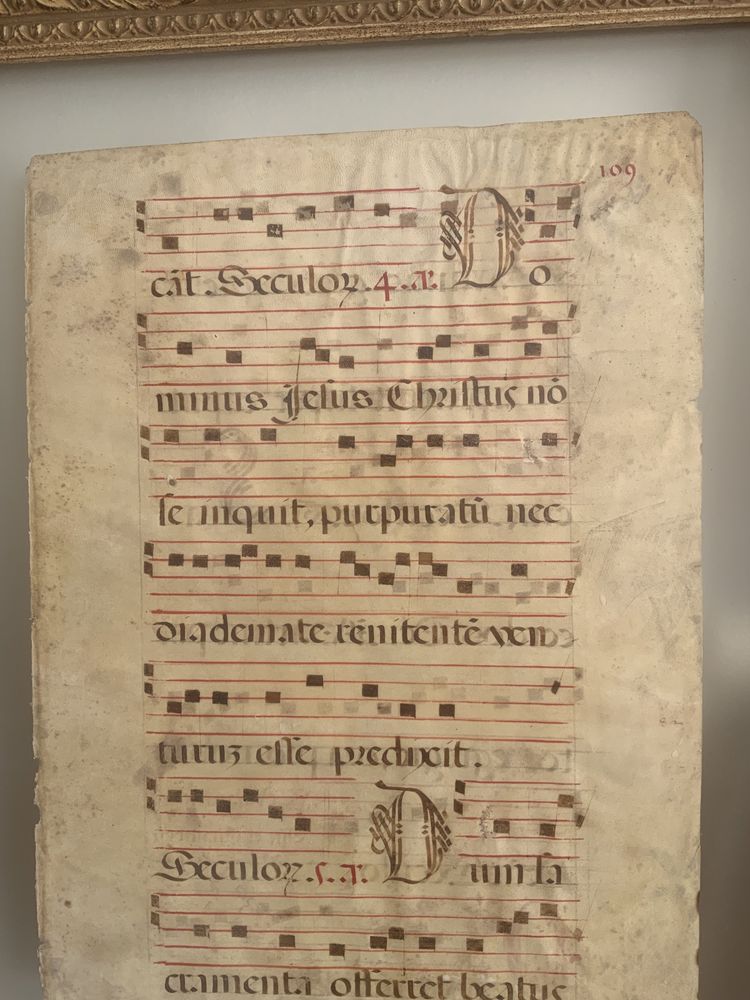 109
cāt. Seculoꝝ. 4. a. Do
minus Jesus Christus nō
se inquit, purpuratū nec
diademate renitentē ven
turuz esse predixit.
Seculoꝝ. 5. a. Dum sa
cramenta offerret beatus